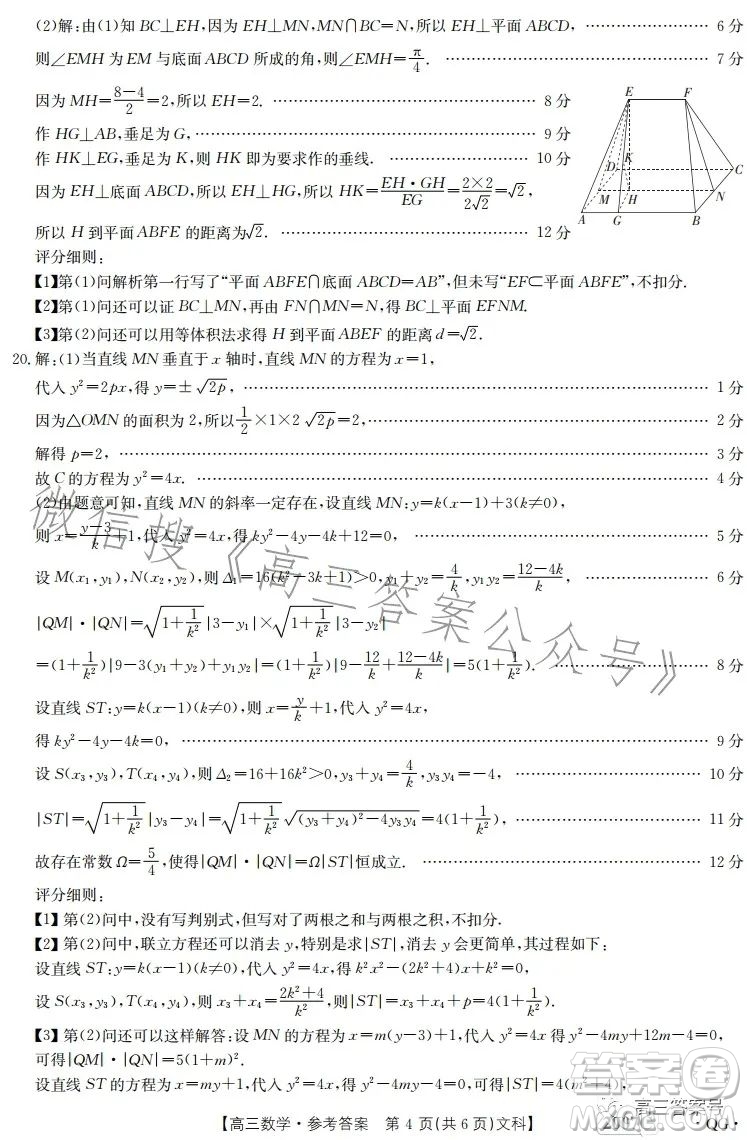 (2)解:由(1)知BC⊥EH,因为EH⊥MN,MN∩BC=N,所以EH⊥平面ABCD, …… 6分
则∠EMH为EM与底面ABCD所成的角,则∠EMH=π/4. …… 7分
因为MH=(8-4)/2=2,所以EH=2. …… 8分
作HG⊥AB,垂足为G, …… 9分
作HK⊥EG,垂足为K,则HK即为要求作的垂线. …… 10分
因为EH⊥底面ABCD,所以EH⊥HG,所以HK=EH·GH/EG=2×2/2√2=√2,
所以H到平面ABFE的距离为√2. …… 12分
E F D K C M H N A G B
评分细则:
【1】第(1)问解析第一行写了“平面ABFE∩底面ABCD=AB”,但未写“EF⊂平面ABFE”,不扣分.
【2】第(1)问还可以证BC⊥MN,再由FN∩MN=N,得BC⊥平面EFNM.
【3】第(2)问还可以用等体积法求得H到平面ABEF的距离d=√2.
20.解:(1)当直线MN垂直于x轴时,直线MN的方程为x=1,
代入y²=2px,得y=±√2p, …… 1分
因为△OMN的面积为2,所以1/2×1×2√2p=2, …… 2分
解得p=2, …… 3分
故C的方程为y²=4x. …… 4分
(2)由题意可知,直线MN的斜率一定存在,设直线MN:y=k(x-1)+3(k≠0),
则x=(y-3)/k+1,代入y²=4x,得ky²-4y-4k+12=0, …… 5分
设M(x₁,y₁),N(x₂,y₂),则Δ₁=16(k²-3k+1)>0,y₁+y₂=4/k,y₁y₂=(12-4k)/k, …… 6分
|QM|·|QN|=√(1+1/k²)|3-y₁|×√(1+1/k²)|3-y₂|
=(1+1/k²)|9-3(y₁+y₂)+y₁y₂|=(1+1/k²)|9-12/k+(12-4k)/k|=5(1+1/k²). …… 8分
设直线ST:y=k(x-1)(k≠0),则x=y/k+1,代入y²=4x,
得ky²-4y-4k=0, …… 9分
设S(x₃,y₃),T(x₄,y₄),则Δ₂=16+16k²>0,y₃+y₄=4/k,y₃y₄=-4, …… 10分
|ST|=√(1+1/k²)|y₃-y₄|=√(1+1/k²)√((y₃+y₄)²-4y₃y₄)=4(1+1/k²), …… 11分
故存在常数Ω=5/4,使得|QM|·|QN|=Ω|ST|恒成立. …… 12分
评分细则:
【1】第(2)问中,没有写判别式,但写对了两根之和与两根之积,不扣分.
【2】第(2)问中,联立方程还可以消去y,特别是求|ST|,消去y会更简单,其过程如下:
设直线ST:y=k(x-1)(k≠0),代入y²=4x,得k²x²-(2k²+4)x+k²=0,
设S(x₃,y₃),T(x₄,y₄),则x₃+x₄=(2k²+4)/k²,则|ST|=x₃+x₄+p=4(1+1/k²).
【3】第(2)问还可以这样解答:设MN的方程为x=m(y-3)+1,代入y²=4x得y²-4my+12m-4=0,
可得|QM|·|QN|=5(1+m)².
设直线ST的方程为x=my+1,代入y²=4x,得y²-4my-4=0,可得|ST|=4(m²+4),
【高三数学·参考答案 第4页(共6页)文科】
·QG·
微信搜《高三答案公众号》
高三答案号
答案圈